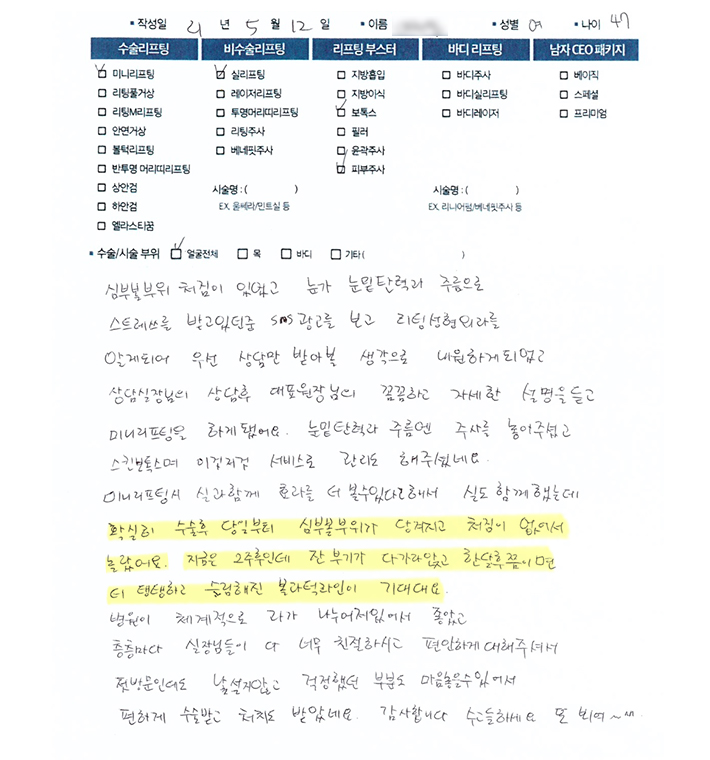 • 작성일 21 년 5 월 12 일 • 이름 • 성별 여 • 나이 47
수술리프팅 비수술리프팅 리프팅 부스터 바디 리프팅 남자 CEO 패키지
미니리프팅 실리프팅 지방흡입 바디주사 베이직
리팅풀거상 레이저리프팅 지방이식 바디실리프팅 스페셜
리팅M리프팅 투명머리띠리프팅 보톡스 바디레이저 프리미엄
안면거상 리팅주사 필러
볼턱리프팅 베네핏주사 윤곽주사
반투명 머리띠리프팅 피부주사
상안검 시술명 : ( ) 시술명 : ( )
하안검 EX. 울쎄라/민트실 등 EX. 리니어펌/베네핏주사 등
엘라스티꿈
• 수술/시술 부위 얼굴전체 목 바디 기타 ( )
심부볼부위 처짐이 있었고 눈가 눈밑탄력과 주름으로
스트레쓰를 받고있던중 sns광고를 보고 리팅성형외과를
알게되어 우선 상담만 받아볼 생각으로 내원하게되었고
상담실장님의 상담후 대표원장님의 꼼꼼하고 자세한 설명을듣고
미니리프팅을 하게됐어요. 눈밑탄력과 주름엔 주사를 놓아주셨고
스킨보톡스며 이것저것 서비스로 관리도 해주셨네요.
미니리프팅시 실과함께 효과를 더 볼수있다고해서 실도 함께했는데
확실히 수술후 당일부터 심부볼부위가 당겨지고 처짐이 없어서
놀랐어요. 지금은 2주후인데 잔부기가 다가라앉고 한달후쯤이면
더 탱탱하고 슬림해진 볼과턱라인이 기대대요.
병원이 체계적으로 과가 나누어져있어서 좋았고
층층마다 실장님들이 다 너무 친절하시고 편안하게 대해주셔서
첫방문인데도 낯설지않고 걱정했던 부분도 마음놓을수있어서
편하게 수술받고 처치도 받았네요. 감사합니다 수고들하세요 또 뵈어~